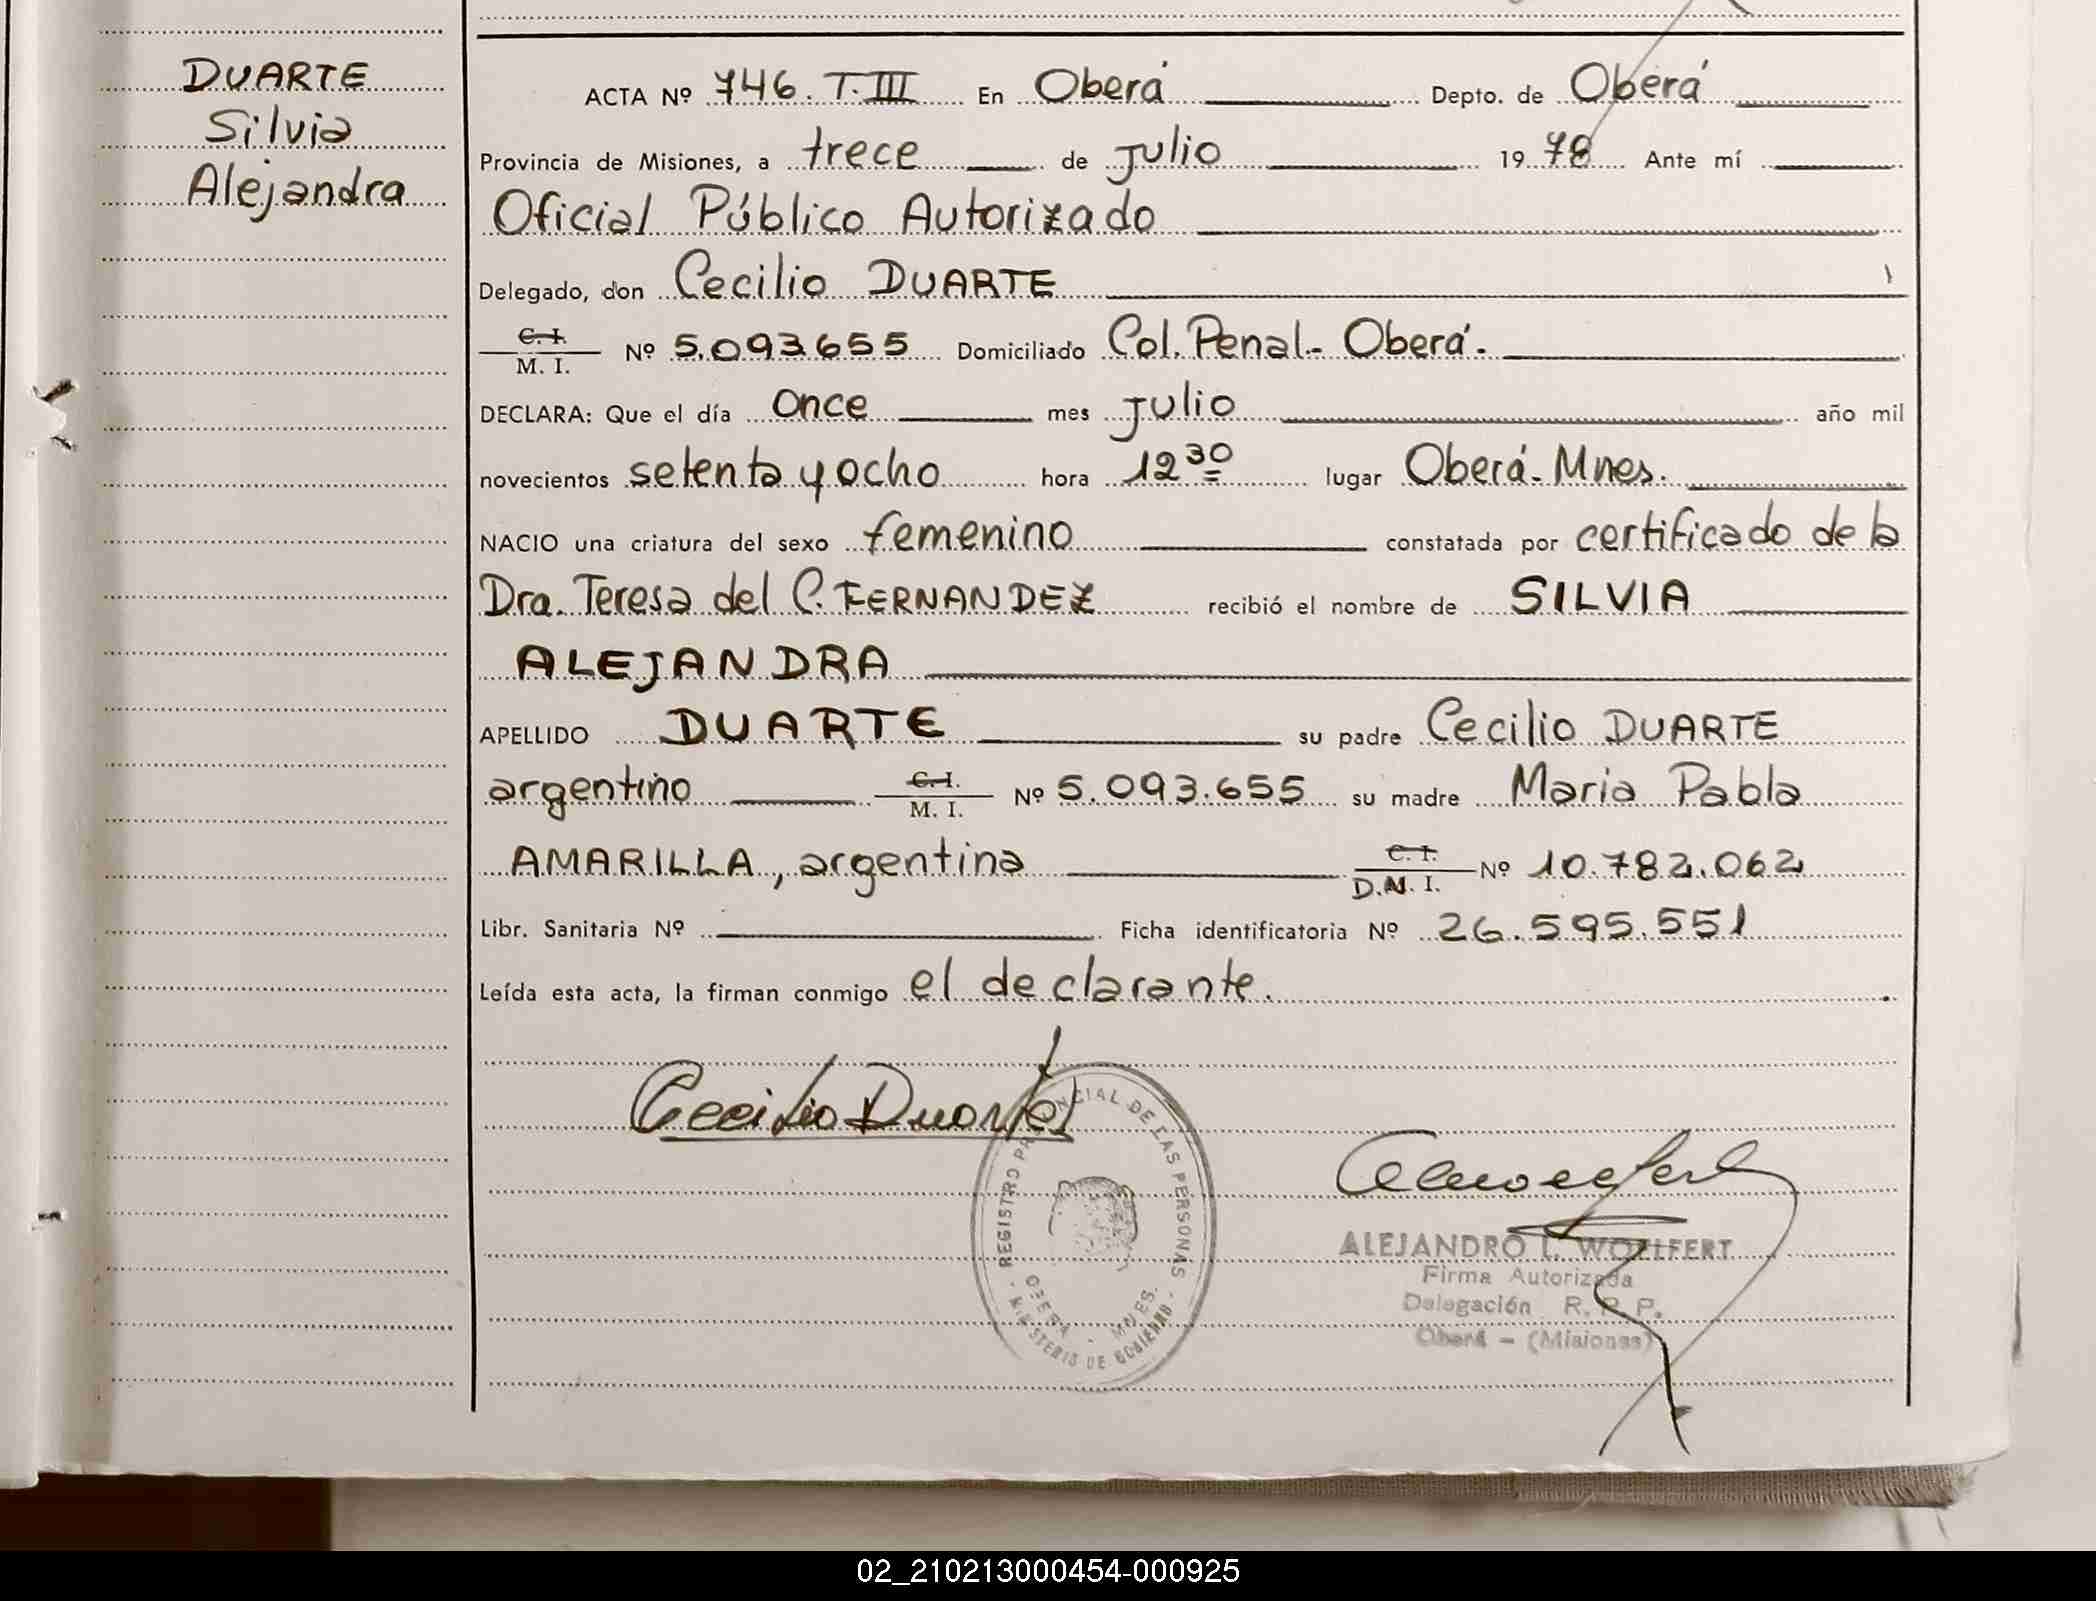 DUARTE
Silvia
Alejandra
ACTA Nº 746. T. III En Oberá Depto. de Oberá
Provincia de Misiones, a trece de julio 19 78 Ante mí
Oficial Público Autorizado
Delegado, don Cecilio DUARTE
C. I.
M. I. Nº 5.093.655 Domiciliado Col. Penal.- Oberá.-
DECLARA: Que el día once mes julio año mil
novecientos setenta y ocho hora 12 30 lugar Oberá- Mnes.
NACIO una criatura del sexo femenino constatada por certificado de la
Dra. Teresa del C. FERNANDEZ recibió el nombre de SILVIA
ALEJANDRA
APELLIDO DUARTE su padre Cecilio DUARTE
argentino C. I.
M. I. Nº 5.093.655 su madre Maria Pabla
AMARILLA, argentina C. I.
D.N. I. Nº 10.782.062
Libr. Sanitaria Nº Ficha identificatoria Nº 26.595.551
Leída esta acta, la firman conmigo el declarante.
Cecilio Duarte
REGISTRO PROVINCIAL DE LAS PERSONAS
OBERA - MNES.
MINISTERIO DE GOBIERNO
ALEJANDRO L. WOELFERT
Firma Autorizada
Delegación R. P. P.
Oberá - (Misiones)
02_210213000454-000925